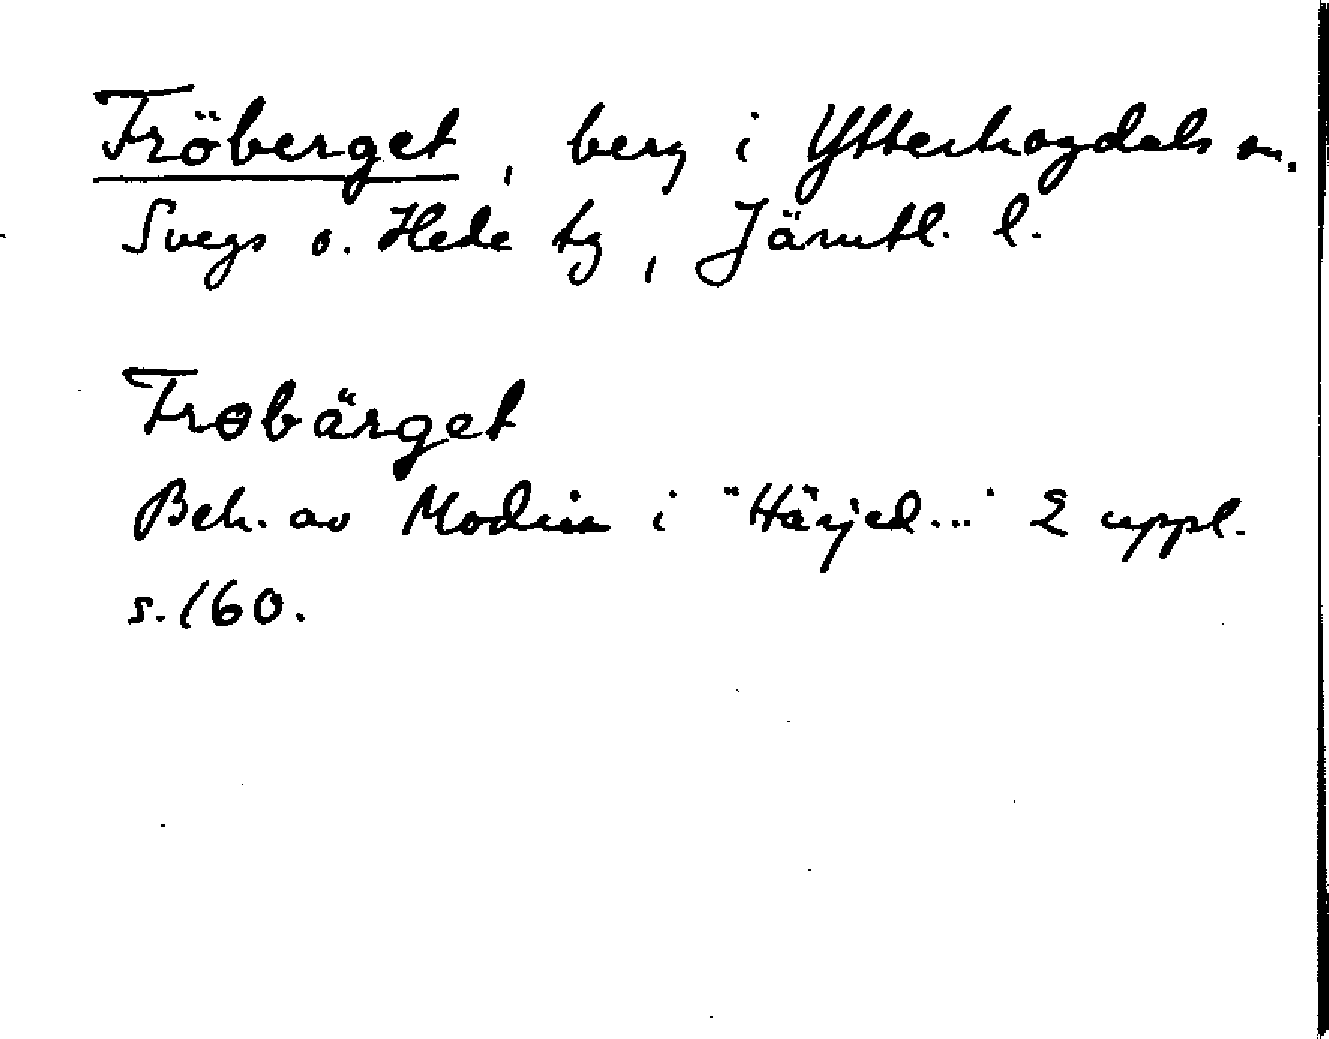 Fröberget, berg i Ytterhogdals sn.
Svegs o. Hede tg, Jämtl. l.
Frøbärget
Beh. av Modin i "Härjed..." 2 uppl.
s. 160.